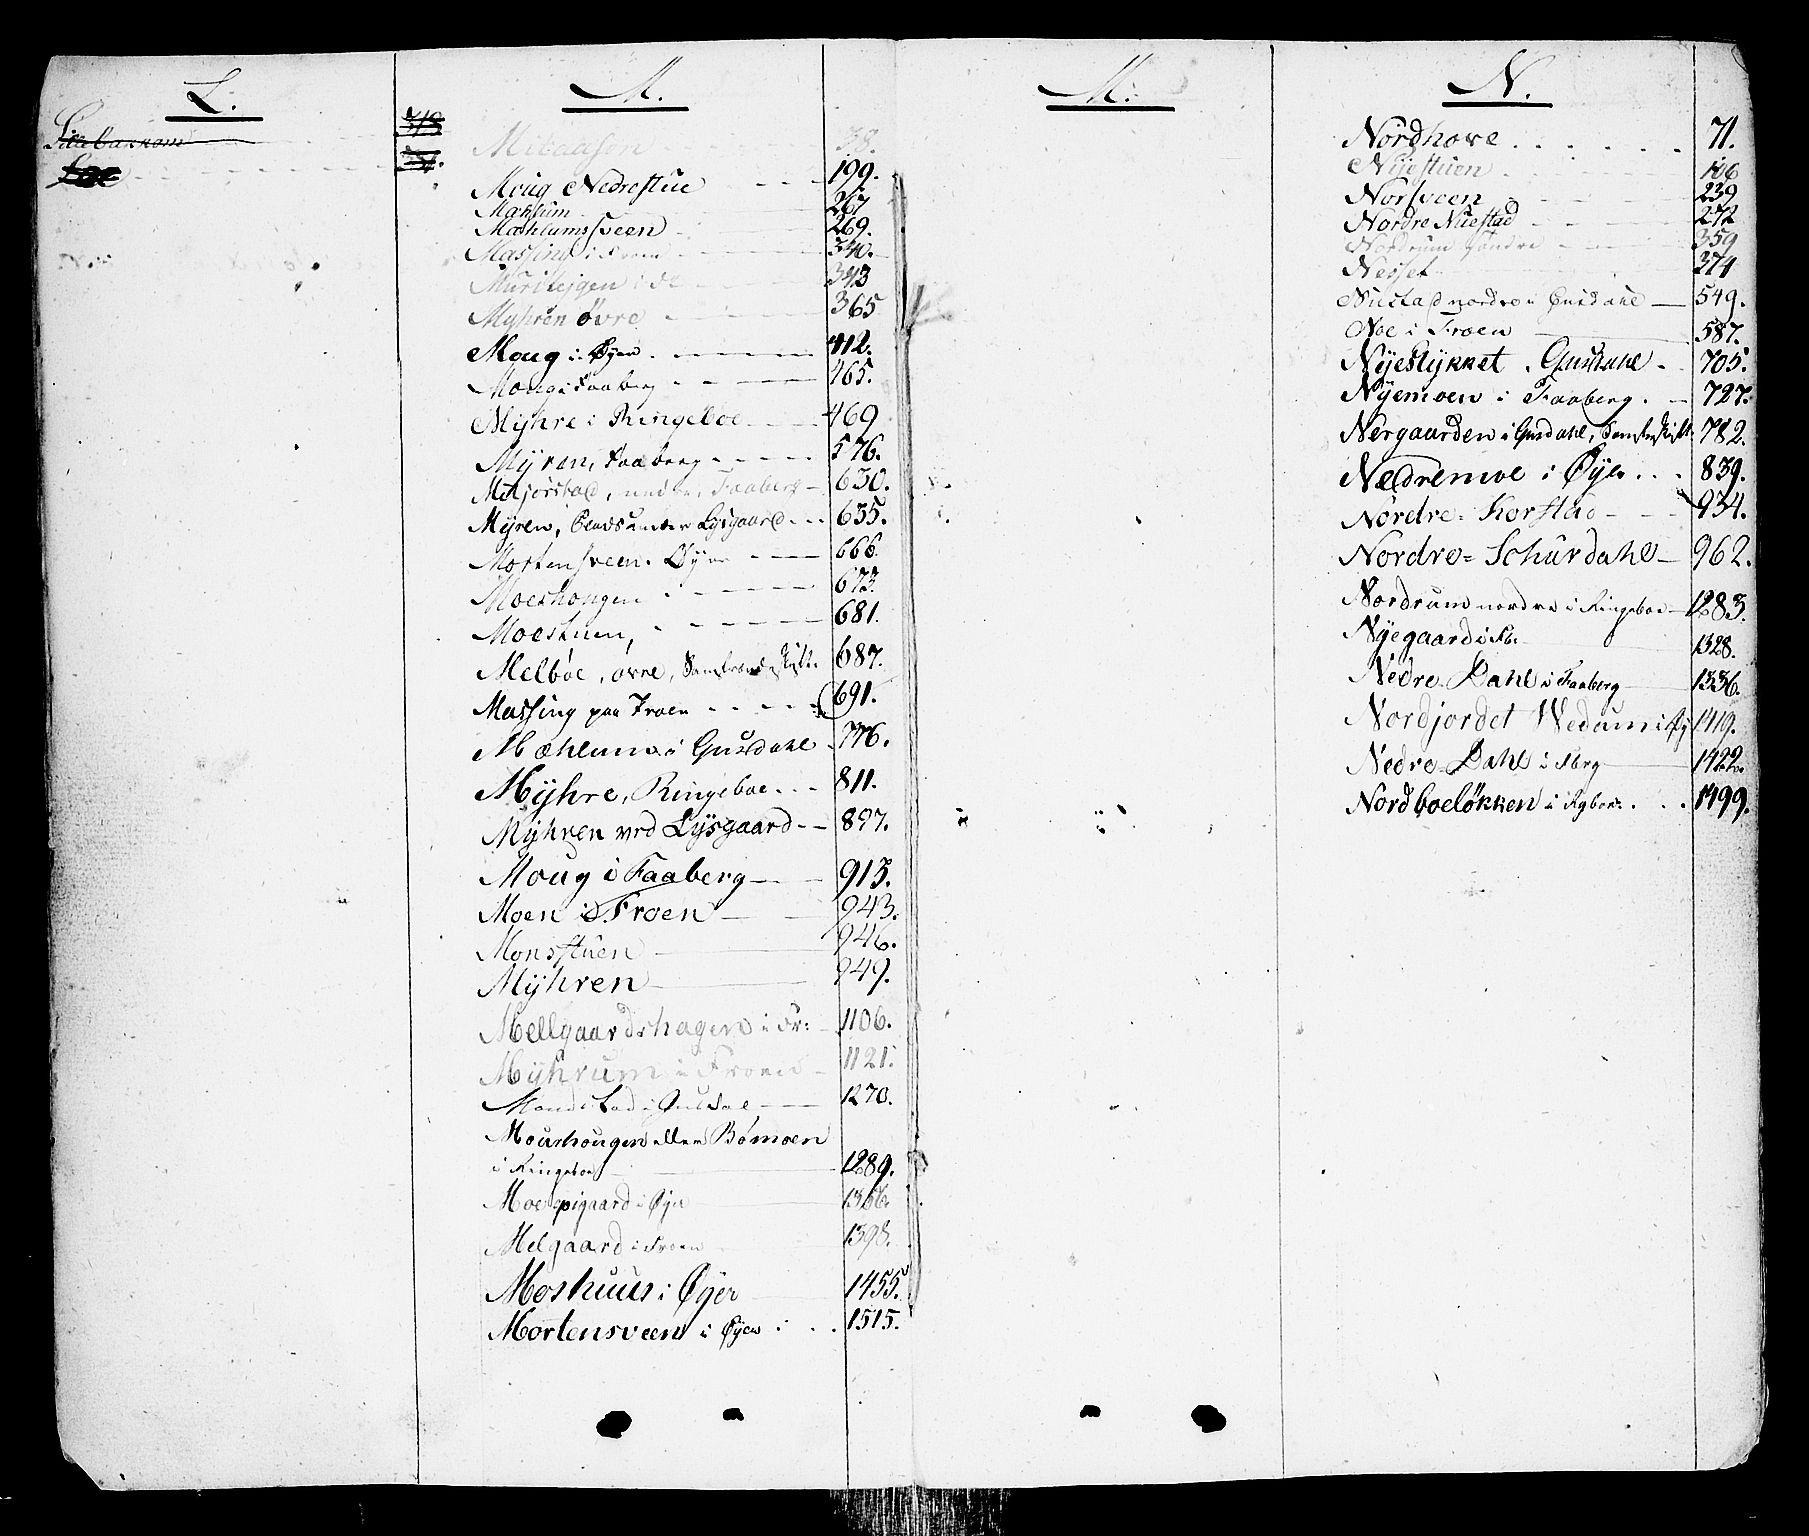 L.
M.
Milaasen 38.
Moug Nedrestue 199.
Mæhlum 267
Mæhlumssveen 269.
Massing i Froen 340.
Muristejgen 343
Myhren øvre 365
Moug i Øyer 412.
Moug i Faaberg 465.
Myhre i Ringeboe 469
Myren, Faaberg 576.
Meljorstad, nedre, Faaberg 630.
Myren, Lysgaard 635.
Mortensveen. Øyer 666.
Moeshougen 673.
Moestuen, 681.
Melbøe, øvre, 687.
Massing paa Froen 691.
Mæhlum i Gusdahl 776.
Myhre, Ringeboe 811.
Myhren ved Lysgaard 897.
Moug i Faaberg 913.
Moen i Froen 943.
Monsstuen 946.
Myhren 949.
Mellgaardshagen i Fr: 1106.
Myhrum i Froen 1121.
i Gusdal 1270.
Mourhougen eller Bømoen
i Ringeboe 1289.
i Øyer 1366.
Melgaard i Froen 1398.
Moshuus i Øyer 1455.
Mortensveen i Øyer 1515.
M.
N.
Nordhove 71.
Nyestuen 106
Norsveen 239
Nordre Nuestad 272
Nordrum søndre 359
Nesset 374
Nustad nordre i Gusdahl 549.
Noe i Froen 587.
Nyestykket. Gusdahl 705.
Nyemoen i Faaberg. 727.
Nergaarden i Gusdahl, 782.
Nedremoe i Øyer 839.
Nordre Korstad 934.
Nordre Schurdahl 962.
Nordrum nordre i Ringeboe 1283.
Nyegaard i Fb: 1328.
Nedre Dahl i Faaberg 1336.
Nordjordet Wedum i Øy 1419.
Nedre Dahl i Fberg 1422.
Nordboeløkken i 1499.